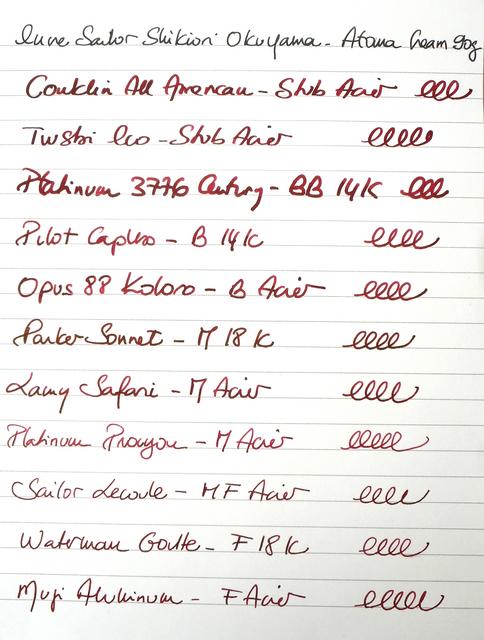 Sailor Shikiori Okuyama - Atoma Cream 90g
Conklin All American - Stub Acier
Twsbi Eco - Stub Acier
Platinum 3776 Century - BB 14K
Pilot Capless - B 14K
Opus 88 Koloro - B Acier
Parker Sonnet - M 18 K
Lamy Safari - M Acier
Platinum Procyon - M Acier
Sailor Lecoule - MF Acier
Waterman Goutte - F 18 K
Muji Aluminum - F Acier